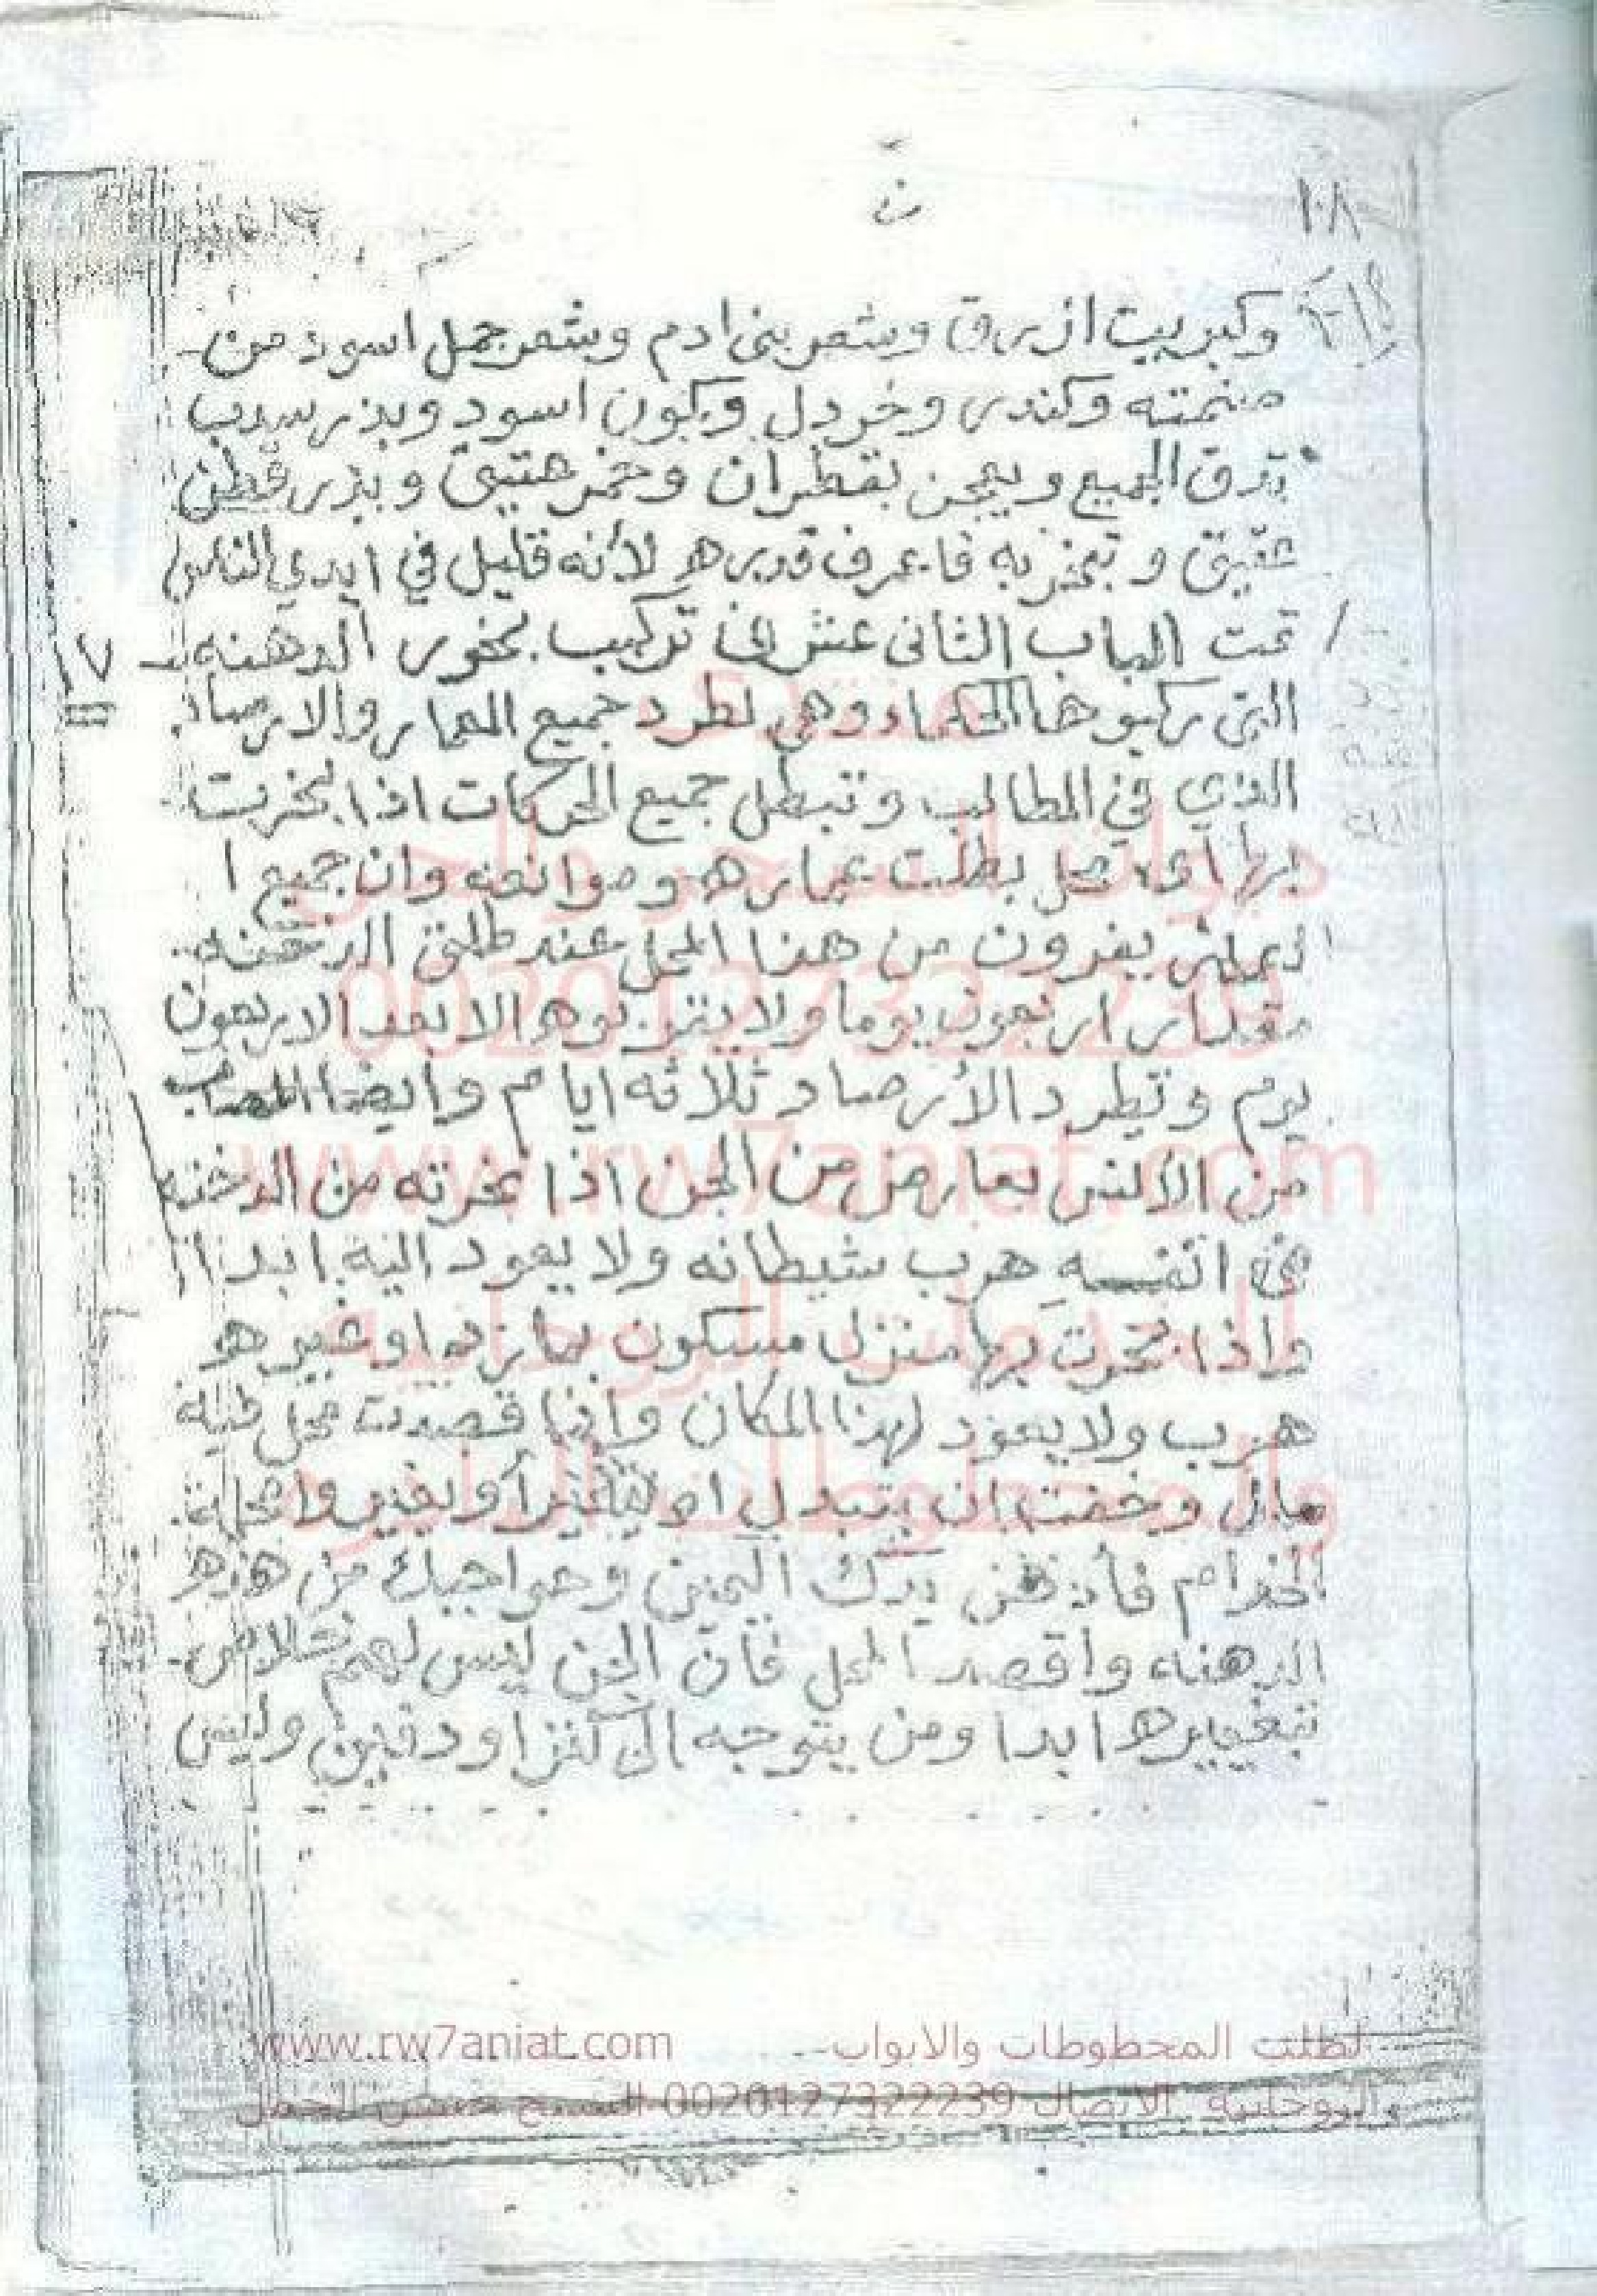 ن
١٠٨
وكبريت ازرق وشعر بنى ادم وشعر جمل اسود من
صنمته وكندس وخردل وكمون اسود وبذر سدب
تدق الجميع ويعجن بقطران وخمر عتيق وبذر قطن
عتيق وتبخر به فاعرف قدره لأنه قليل في ايدي الناس
تمت الباب الثانى عشر فى تركيب بخور الدهنه
التى ركبوها الحكماء وهى لطرد جميع العمار والارصاد
الذي في المطالب وتبطل جميع الحركات اذا بخرت
بها أي محل بطلت عماره وموانعه وان جميع ا
يفرون من هذا المحل عند طلق الدخنه
مقدار اربعون يوما ولا ينزلوه الا بعد الاربعون
يوم وتطرد الأرصاد ثلاثه ايام وايضا المصاب
من الأنس بعارض من الجن اذا بخرته من الدخنه
هرب شيطانه ولا يعود اليه ابدا
واذا بخرت بها منزل مسكون بمارد او غيره
هرب ولا يعود لهذا المكان واذا قصدت محل فيه
مال وخفت ان يتبدل او يتغير أو
الخدام فأدهن يدك اليمين وحواجبك من هذه
الدهنه واقصد المحل فأن الجن ليس لهم
تغييره ابدا ومن يتوجه الى كنز او دفين وليس
٧
0020127322239
www.rw7aniat.com
لطلب المخطوطات والابواب
www.rw7aniat.com
الروحانية الاتصال 0020127322239 الشيخ